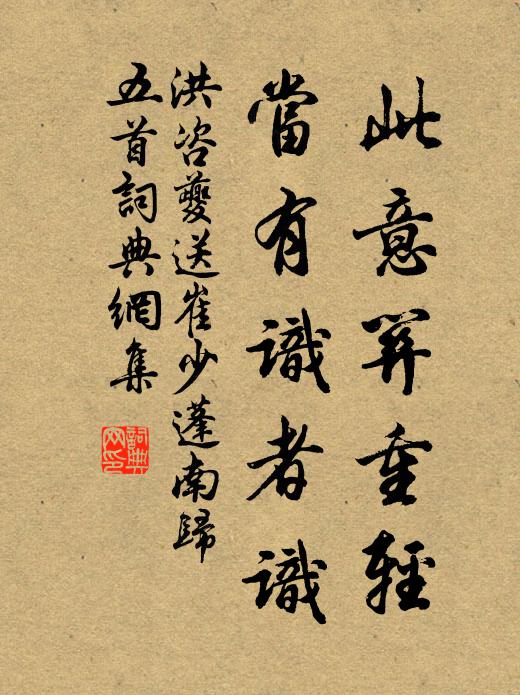 此意關重輕
當有識者識
洪咨夔送崔少蓬南歸
五首詞典網集
詞典
网印